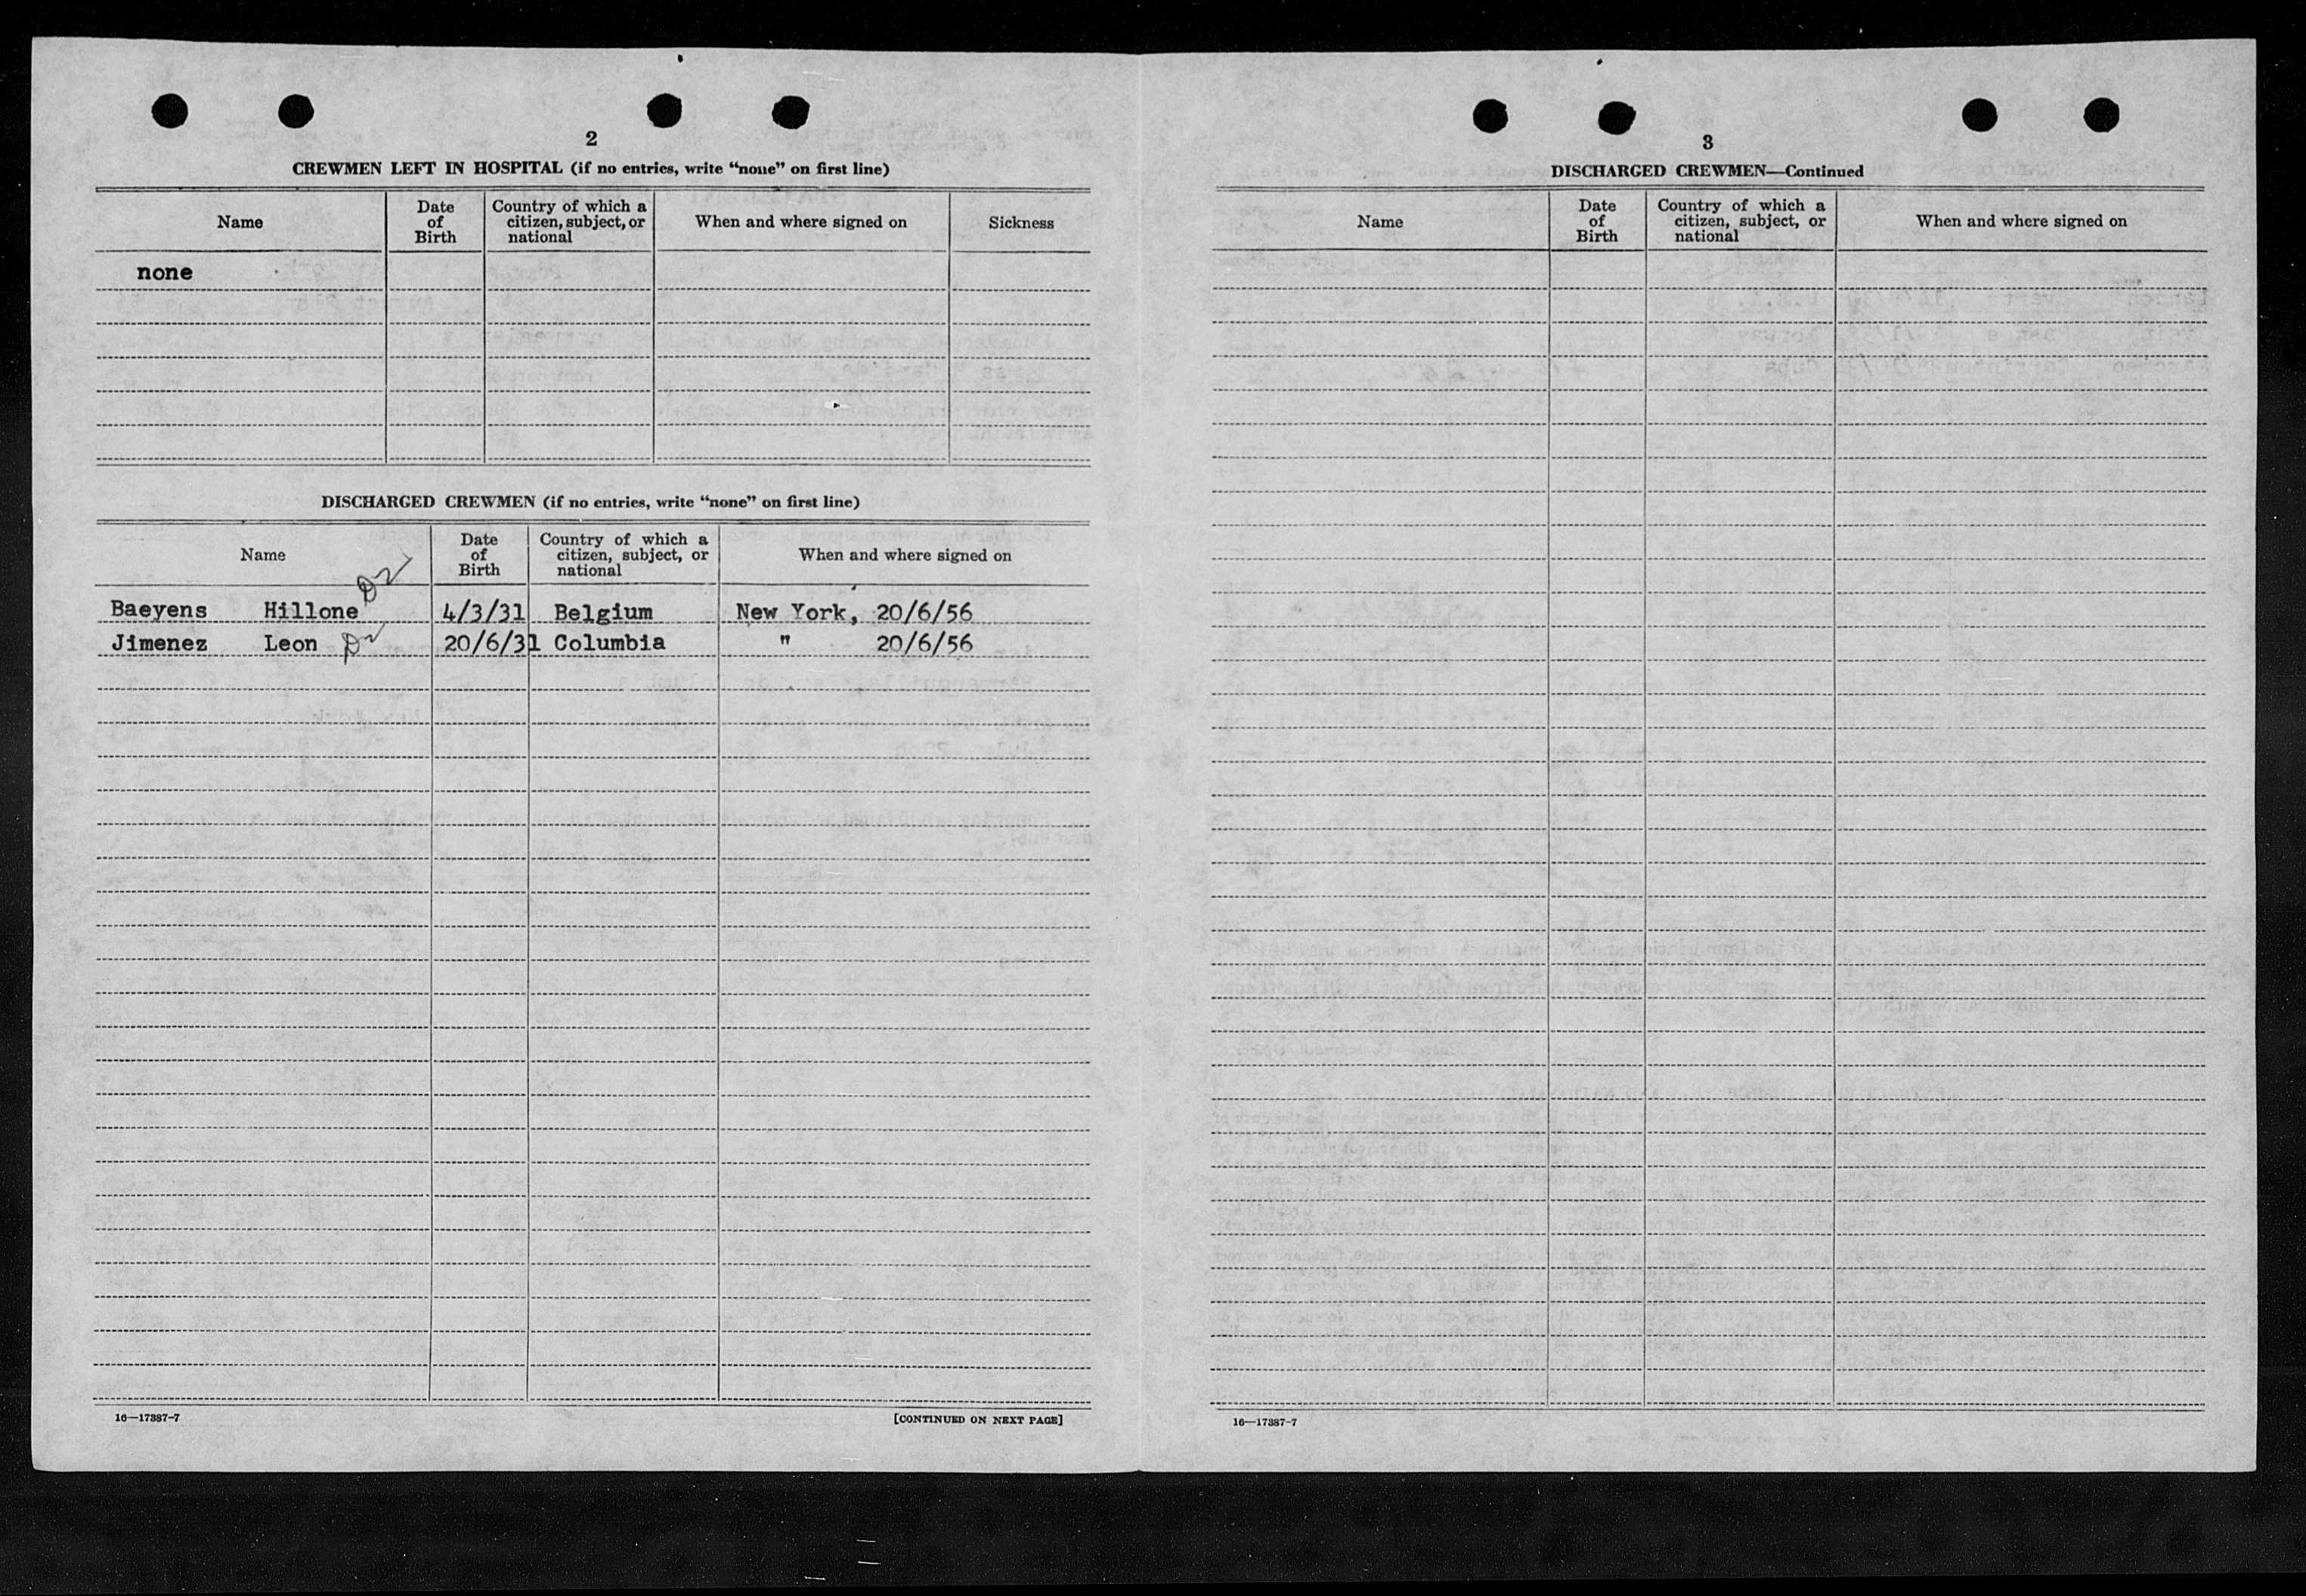 2
CREWMEN LEFT IN HOSPITAL (if no entries, write “none” on first line)
Name
Date of Birth
Country of which a citizen, subject, or national
When and where signed on
Sickness
none
DISCHARGED CREWMEN (if no entries, write “none” on first line)
Name
Date of Birth
Country of which a citizen, subject, or national
When and where signed on
Baeyens Hillone 4/3/31 Belgium New York, 20/6/56
Jimenez Leon 20/6/31 Columbia " 20/6/56
16—17387-7
[CONTINUED ON NEXT PAGE]
3
DISCHARGED CREWMEN—Continued
Name
Date of Birth
Country of which a citizen, subject, or national
When and where signed on
16—17387-7